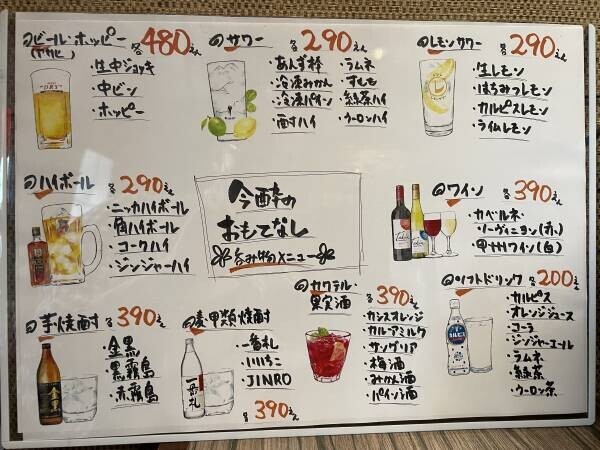 ビール・ホッピー 各480えん
(アサヒ)
・生中ジョッキ
・中ビン
・ホッピー
サワー 各290えん
・あんず棒
・冷凍みかん
・冷凍パイン
・酎ハイ
・ラムネ
・すもも
・緑茶ハイ
・ウーロンハイ
レモンサワー 各290えん
・生レモン
・はちみつレモン
・カルピスレモン
・ライムレモン
ハイボール 各290えん
・ニッカハイボール
・角ハイボール
・コークハイ
・ジンジャーハイ
今酔の
おもてなし
呑み物メニュー
ワイン 各390えん
・カベルネ・
ソーヴィニヨン(赤)
・甲州ワイン(白)
芋焼酎 各390えん
・金黒
・黒霧島
・赤霧島
麦・甲類焼酎
・一番札
・いいちこ
・JINRO
各390えん
カクテル・
果実酒 各390えん
・カシスオレンジ
・カルーアミルク
・サングリア
・梅酒
・みかん酒
・パイン酒
ソフトドリンク 各200えん
・カルピス
・オレンジジュース
・コーラ
・ジンジャーエール
・ラムネ
・緑茶
・ウーロン茶